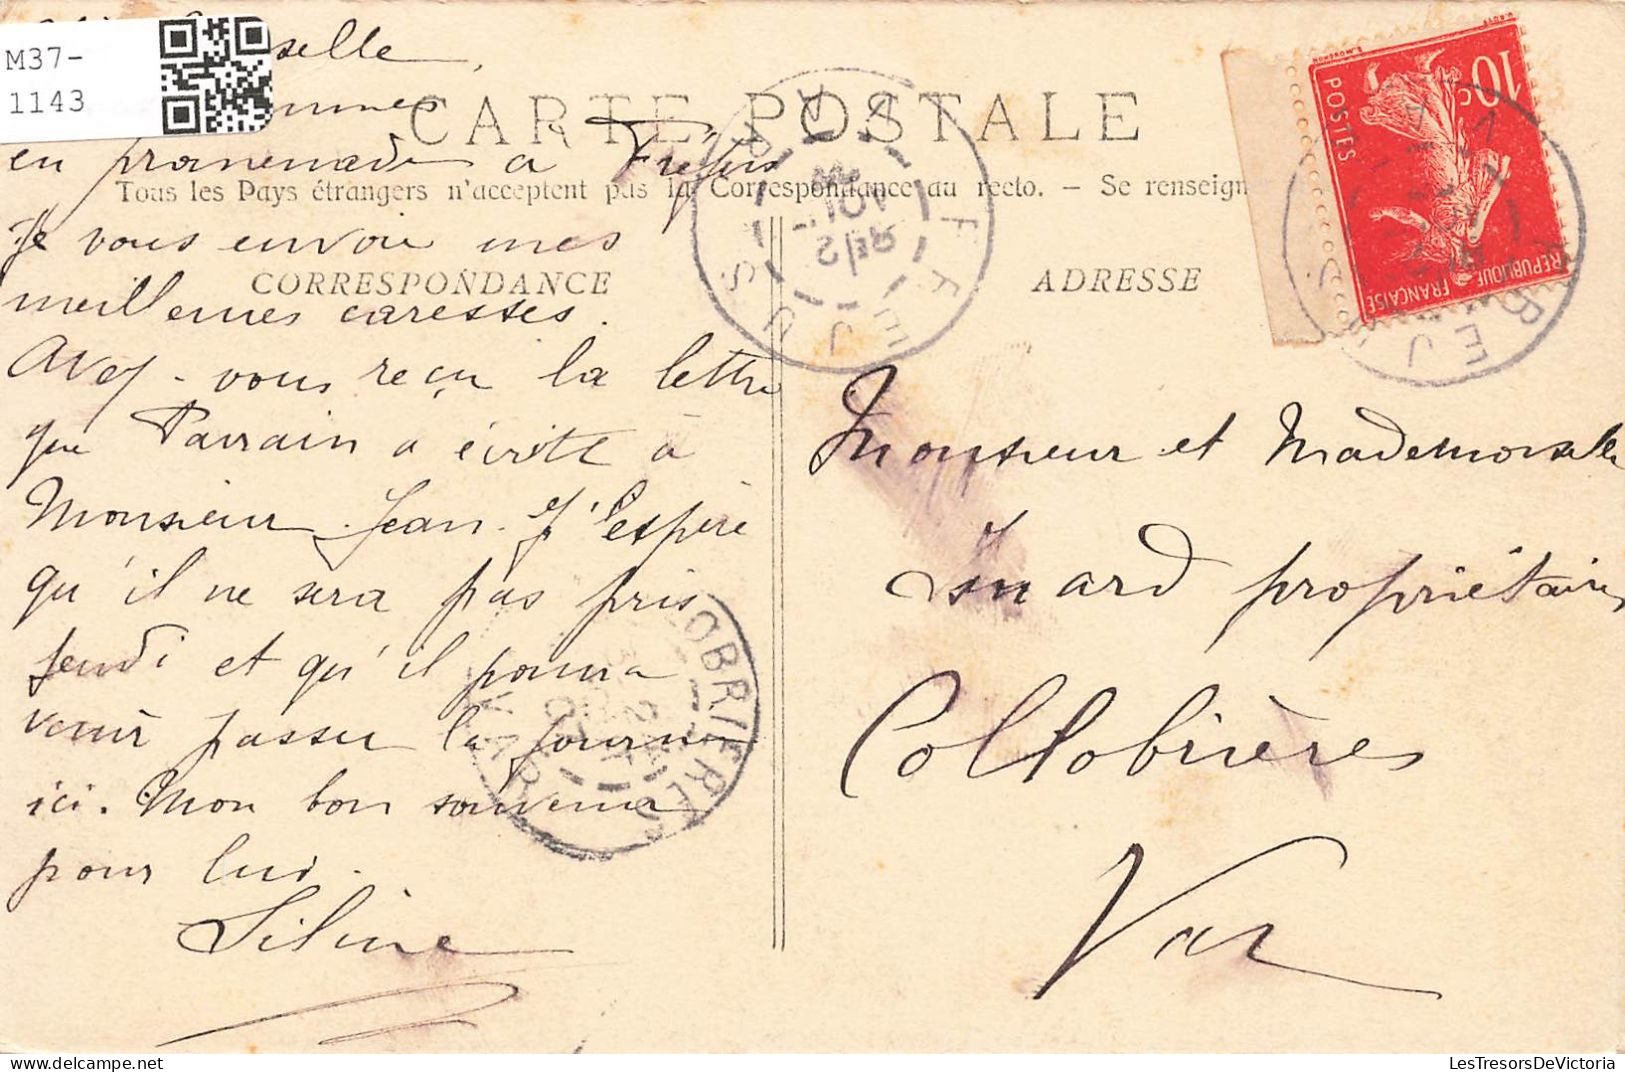 M37-
1143
selle,
en promenade a Frejus
Je vous envoie mes
meilleures caresses.
Avez-vous reçu la lettre
que Parrain a écrite à
Monsieur Jean et j'espère
qu'il ne sera pas pris
Jeudi et qu'il pourra
venir passer la journée
ici. Mon bon souvenir
pour lui.
CARTE POSTALE
Tous les Pays étrangers n'acceptent pas la Correspondance au recto. – Se renseign
CORRESPONDANCE
ADRESSE
Monsieur et Mademoiselle
propriétaires
Collobrières
Var
10c
POSTES
REPUBLIQUE FRANÇAISE
FREJUS
VAR
FREJUS
COLLOBRIERES
VAR
LesTresorsDeVictoria